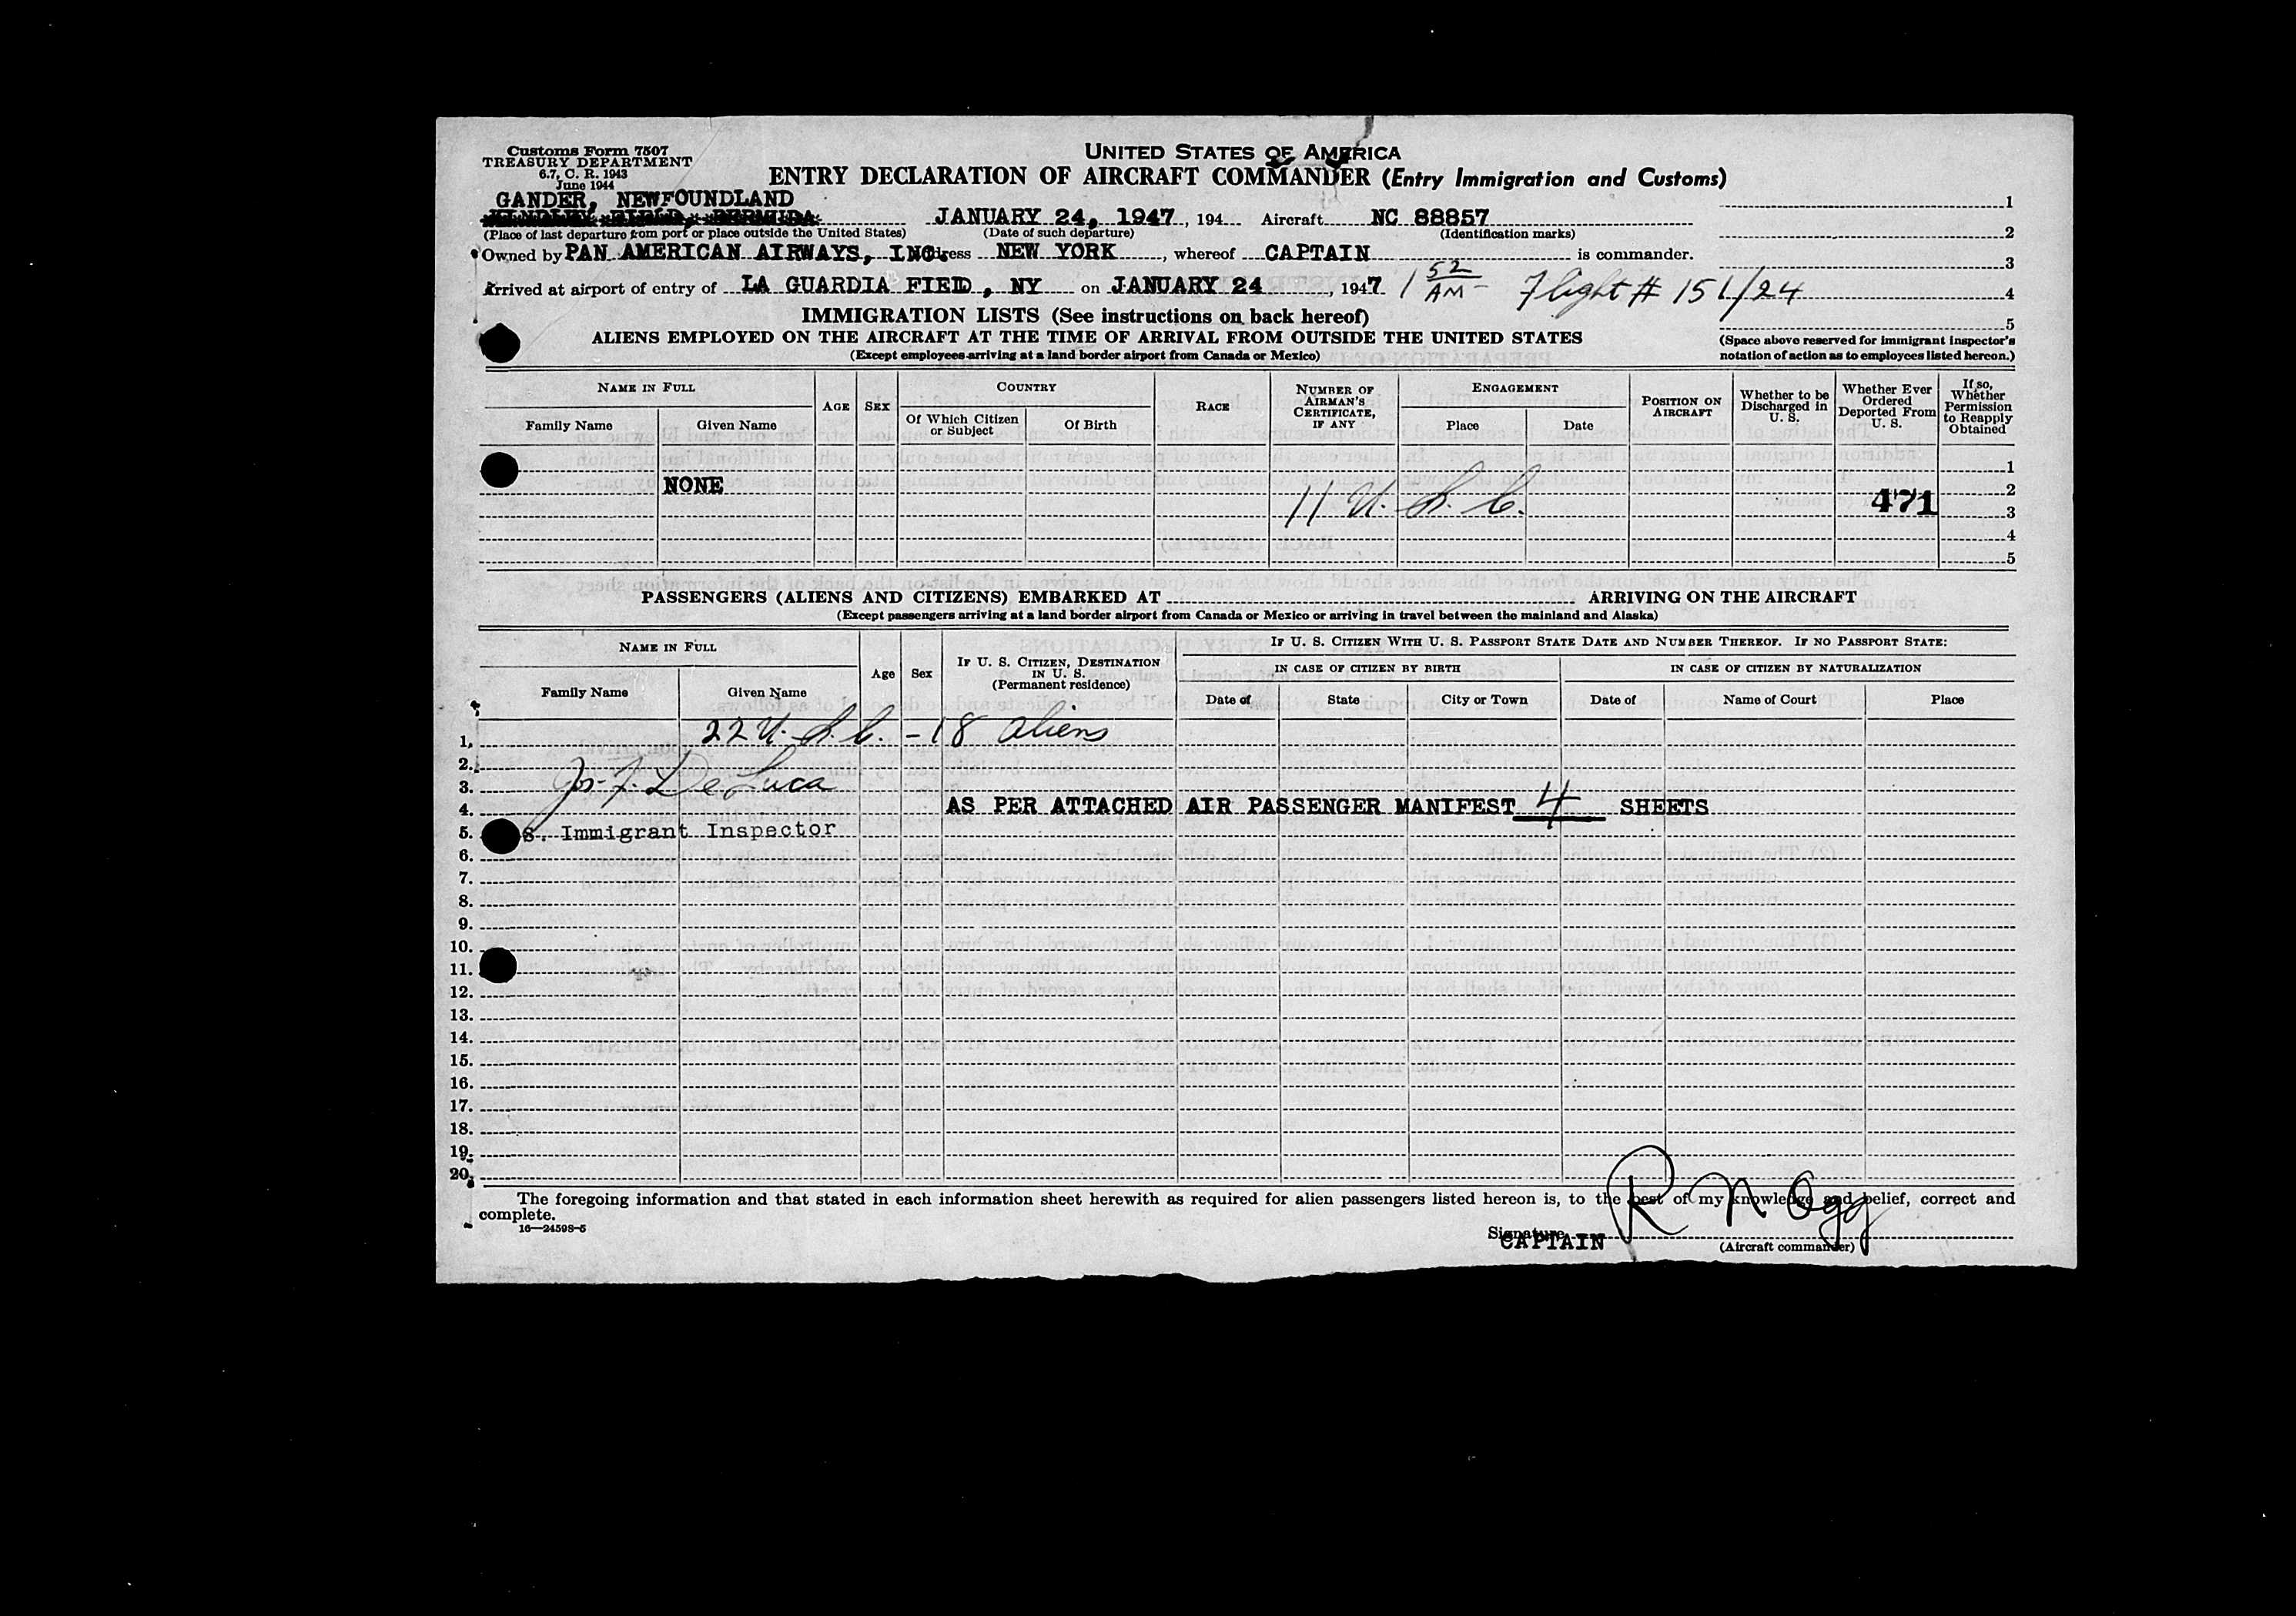 Customs Form 7507
TREASURY DEPARTMENT
6.7, C. R. 1943
June 1944
UNITED STATES OF AMERICA
ENTRY DECLARATION OF AIRCRAFT COMMANDER (Entry Immigration and Customs)
GANDER, NEWFOUNDLAND
KINDLEY FIELD, BERMUDA JANUARY 24, 1947, 194 Aircraft NC 88857
(Place of last departure from port or place outside the United States) (Date of such departure) (Identification marks)
Owned by PAN AMERICAN AIRWAYS, INC. Address NEW YORK, whereof CAPTAIN is commander.
Arrived at airport of entry of LA GUARDIA FIELD, NY on JANUARY 24, 1947 1 52 AM - Flight # 151/24
1
2
3
4
5
(Space above reserved for immigrant inspector's notation of action as to employees listed hereon.)
IMMIGRATION LISTS (See instructions on back hereof)
ALIENS EMPLOYED ON THE AIRCRAFT AT THE TIME OF ARRIVAL FROM OUTSIDE THE UNITED STATES
(Except employees arriving at a land border airport from Canada or Mexico)
NAME IN FULL AGE SEX COUNTRY RACE NUMBER OF AIRMAN'S CERTIFICATE, IF ANY ENGAGEMENT POSITION ON AIRCRAFT Whether to be Discharged in U. S. Whether Ever Ordered Deported From U. S. If so, Whether Permission to Reapply Obtained
Family Name Given Name Of Which Citizen or Subject Of Birth Place Date
1
NONE 2
11 U. S. C. 471 3
4
5
PASSENGERS (ALIENS AND CITIZENS) EMBARKED AT ARRIVING ON THE AIRCRAFT
(Except passengers arriving at a land border airport from Canada or Mexico or arriving in travel between the mainland and Alaska)
NAME IN FULL Age Sex IF U. S. CITIZEN, DESTINATION IN U. S. (Permanent residence) IF U. S. CITIZEN WITH U. S. PASSPORT STATE DATE AND NUMBER THEREOF. IF NO PASSPORT STATE:
IN CASE OF CITIZEN BY BIRTH IN CASE OF CITIZEN BY NATURALIZATION
Family Name Given Name Date of State City or Town Date of Name of Court Place
1. 22 U. S. C. - 18 aliens
2.
3. Jos. F. DeLuca
4. AS PER ATTACHED AIR PASSENGER MANIFEST 4 SHEETS
5. S. Immigrant Inspector
6.
7.
8.
9.
10.
11.
12.
13.
14.
15.
16.
17.
18.
19.
20.
The foregoing information and that stated in each information sheet herewith as required for alien passengers listed hereon is, to the best of my knowledge and belief, correct and
complete.
16—24598-5
Signature R N Ogg
CAPTAIN (Aircraft commander)